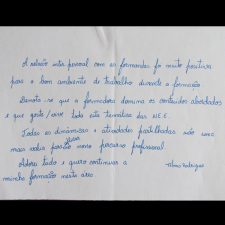 A relação inter pessoal com as formandas foi muito positiva
para o bom ambiente de trabalho durante a formação.
Denota-se que a formadora domina os conteúdos abordados
e que gosta/vive toda esta temática das NEE.
Todas as dinâmicas e atividades partilhadas são uma
mais valia para o nosso percurso profissional.
Adorei tudo e quero continuar a
minha formação nesta área.
Rodrigues